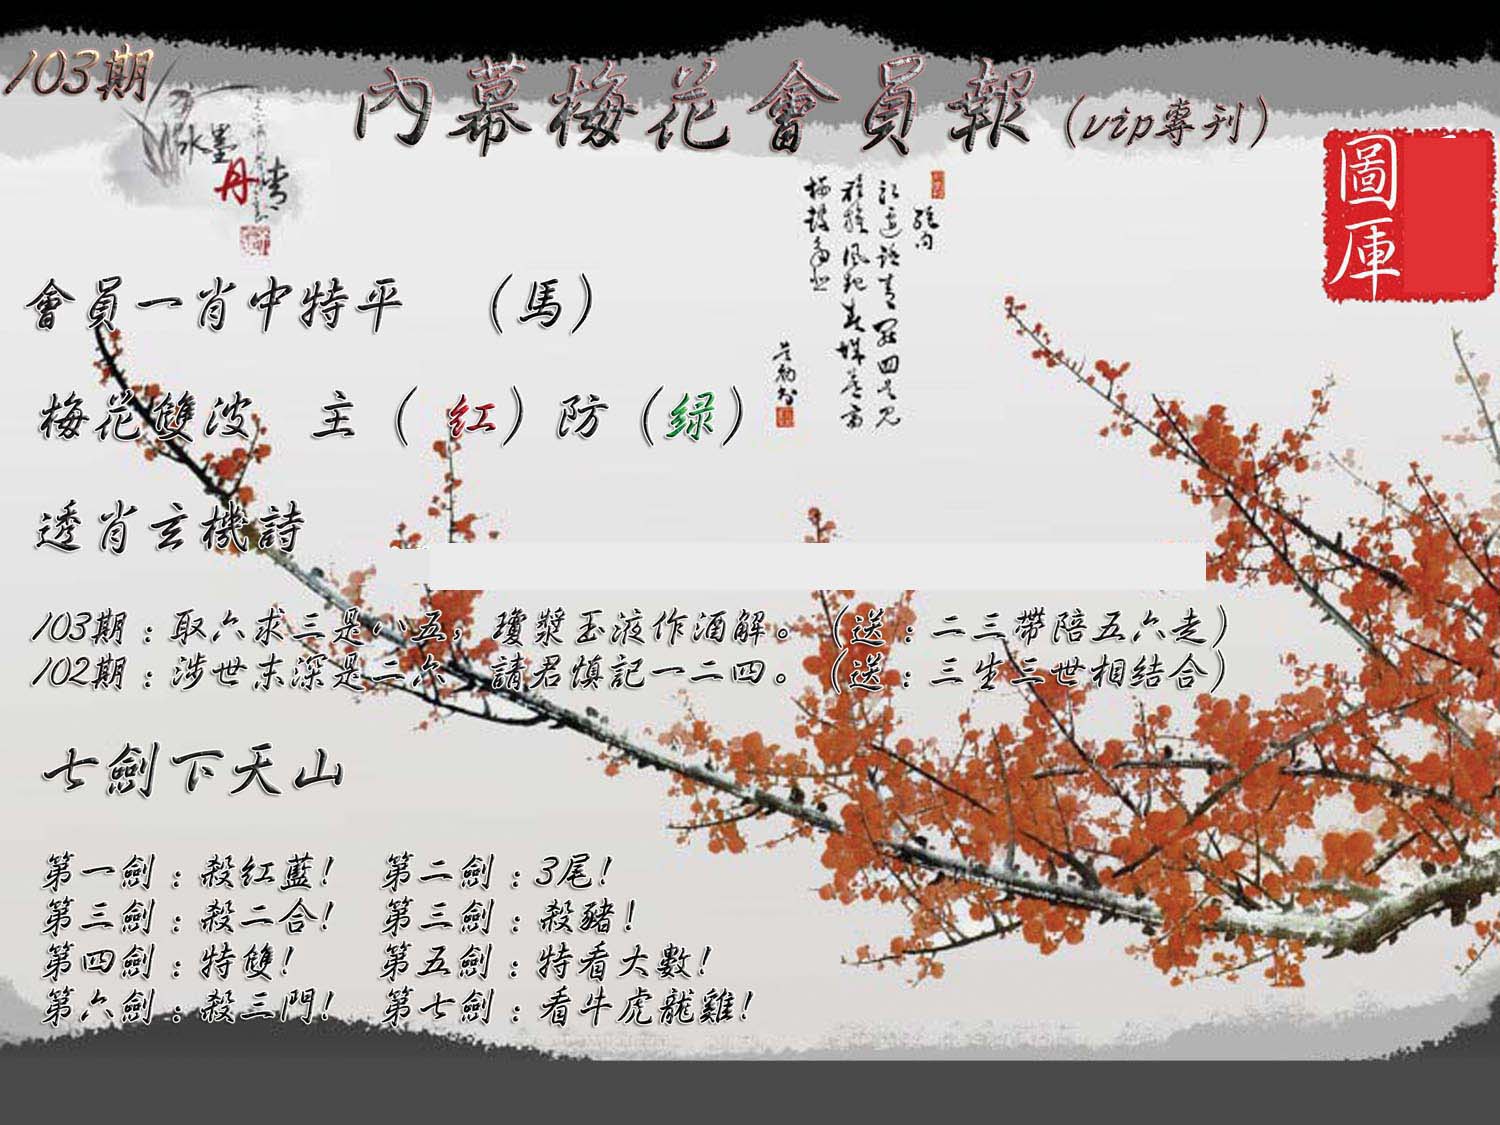 103期
內幕梅花會員報(vip專刊)
水墨
丹青
圖
庫
會員一肖中特平 (馬)
梅花雙波 主(紅)防(绿)
透肖玄機詩
103期：取六求三是八五，瓊漿玉液作酒解。(送：二三帶陪五六走)
102期：涉世末深是二六 請君慎記一二四。(送：三生三世相結合)
七劍下天山
第一劍：殺红藍! 第二劍：3尾!
第三劍：殺二合! 第三劍：殺豬!
第四劍：特雙! 第五劍：特看大數!
第六劍：殺三門! 第七劍：看牛虎龍雞!